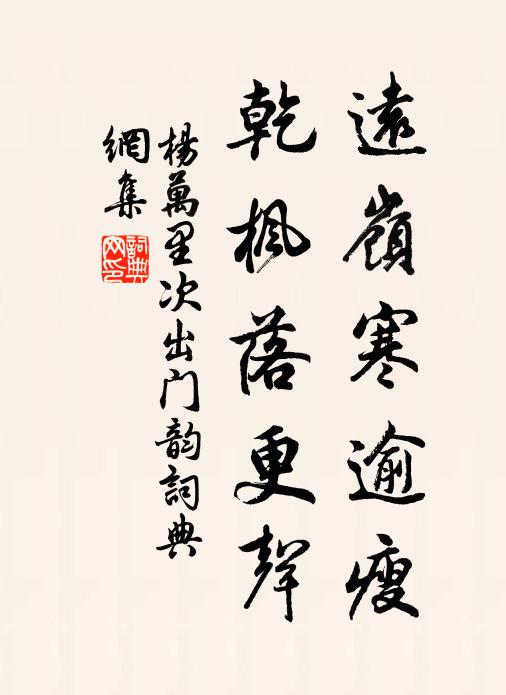 遠嶺寒逾瘦
乾楓落更聲
楊萬里次出門韵詞典
網集
詞典
网印